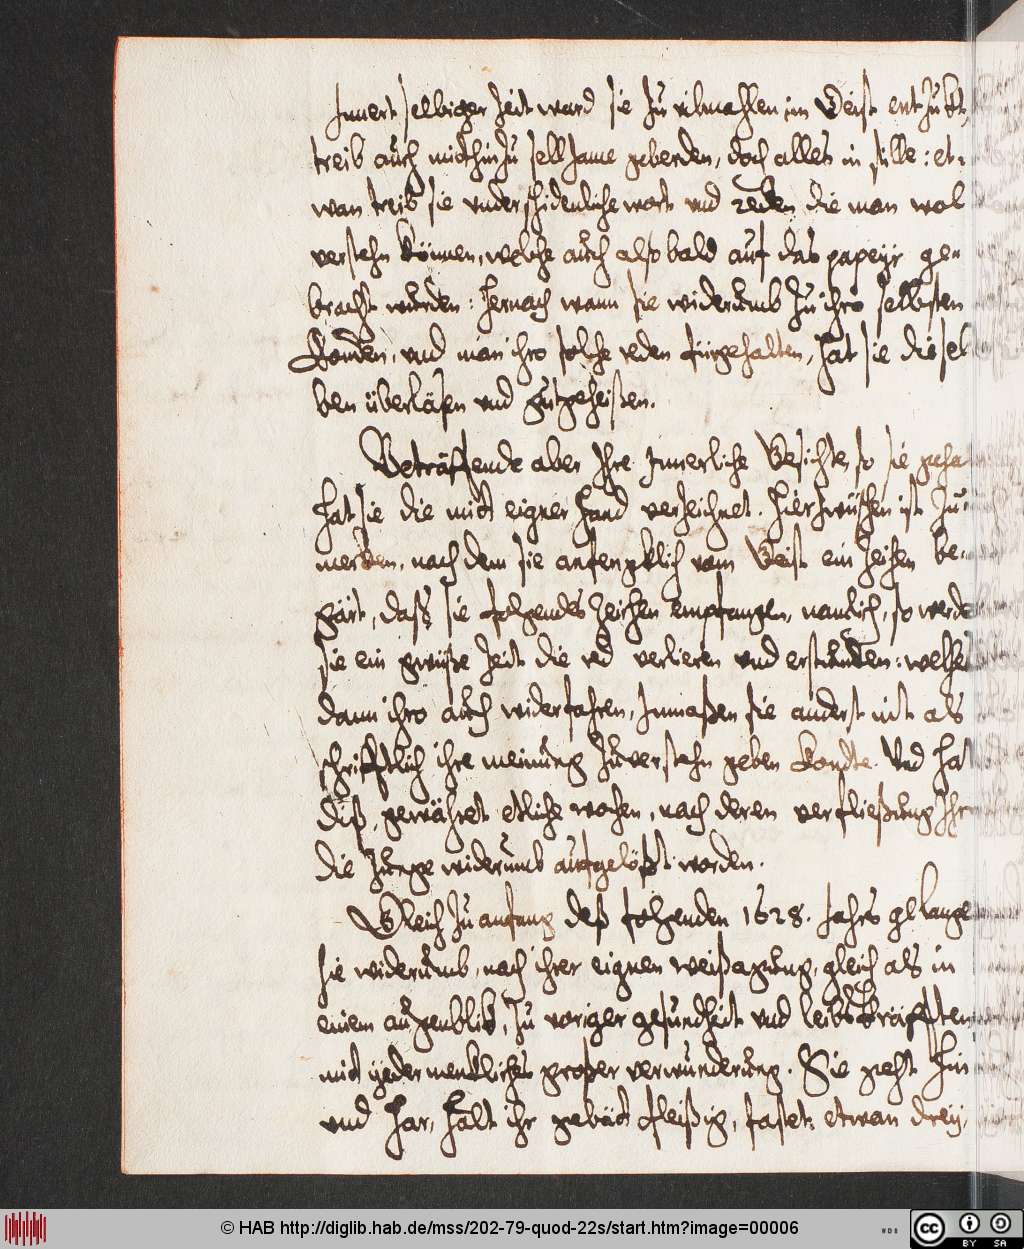 Innert selbiger Zeit ward sie zu vilmahlen im Geist entzukt,
treib auch mithinzu sellsame geberden, doch alles in stille: et-
wan treib sie underschidenliche wort und reden die man wol
verstehn können, welche auch also bald auf das papeyr ge-
bracht wurden: Hernach wann sie widerumb zu ihro selbsten
konden, und man ihro solche reden fürgehalten, hat sie diesel
ben überläsen und gutgeheißen.
Beträffende aber Ihre Innerliche Gesichte, so sie geha
hat sie die mit eigner hand verzeichnet. Hierzwüschen ist zu
merken, nach dem sie anfengklich vom Geist ein zeichen be-
gärt, daß sie folgendes zeichen empfangen, nemlich, so werde
sie ein gwüße Zeit die red verlieren und erstunden: welches
dann ihro auch widerfahren, Inmaßen sie anderst nit als
schrifftlich ihre meinung zuverstehn geben kondte. Und hat
diß gewähret etliche wochen, nach deren verfließung Ihr
die Zunge widerumb aufgelößt worden.
Gleich zu anfang deß folgenden 1628. Jahrs gelange
sie widerumb, nach ihrer eignen weißagung, gleich als in
einem augenblik, zu voriger gesundheit und leibskräfften
mit yedermenkliches großer verwunderung. Sie geht hin
und har, halt ihr gebätt fleißig, fastet etwan drey,
© HAB http://diglib.hab.de/mss/202-79-quod-22s/start.htm?image=00006
WDB
cc
BY SA